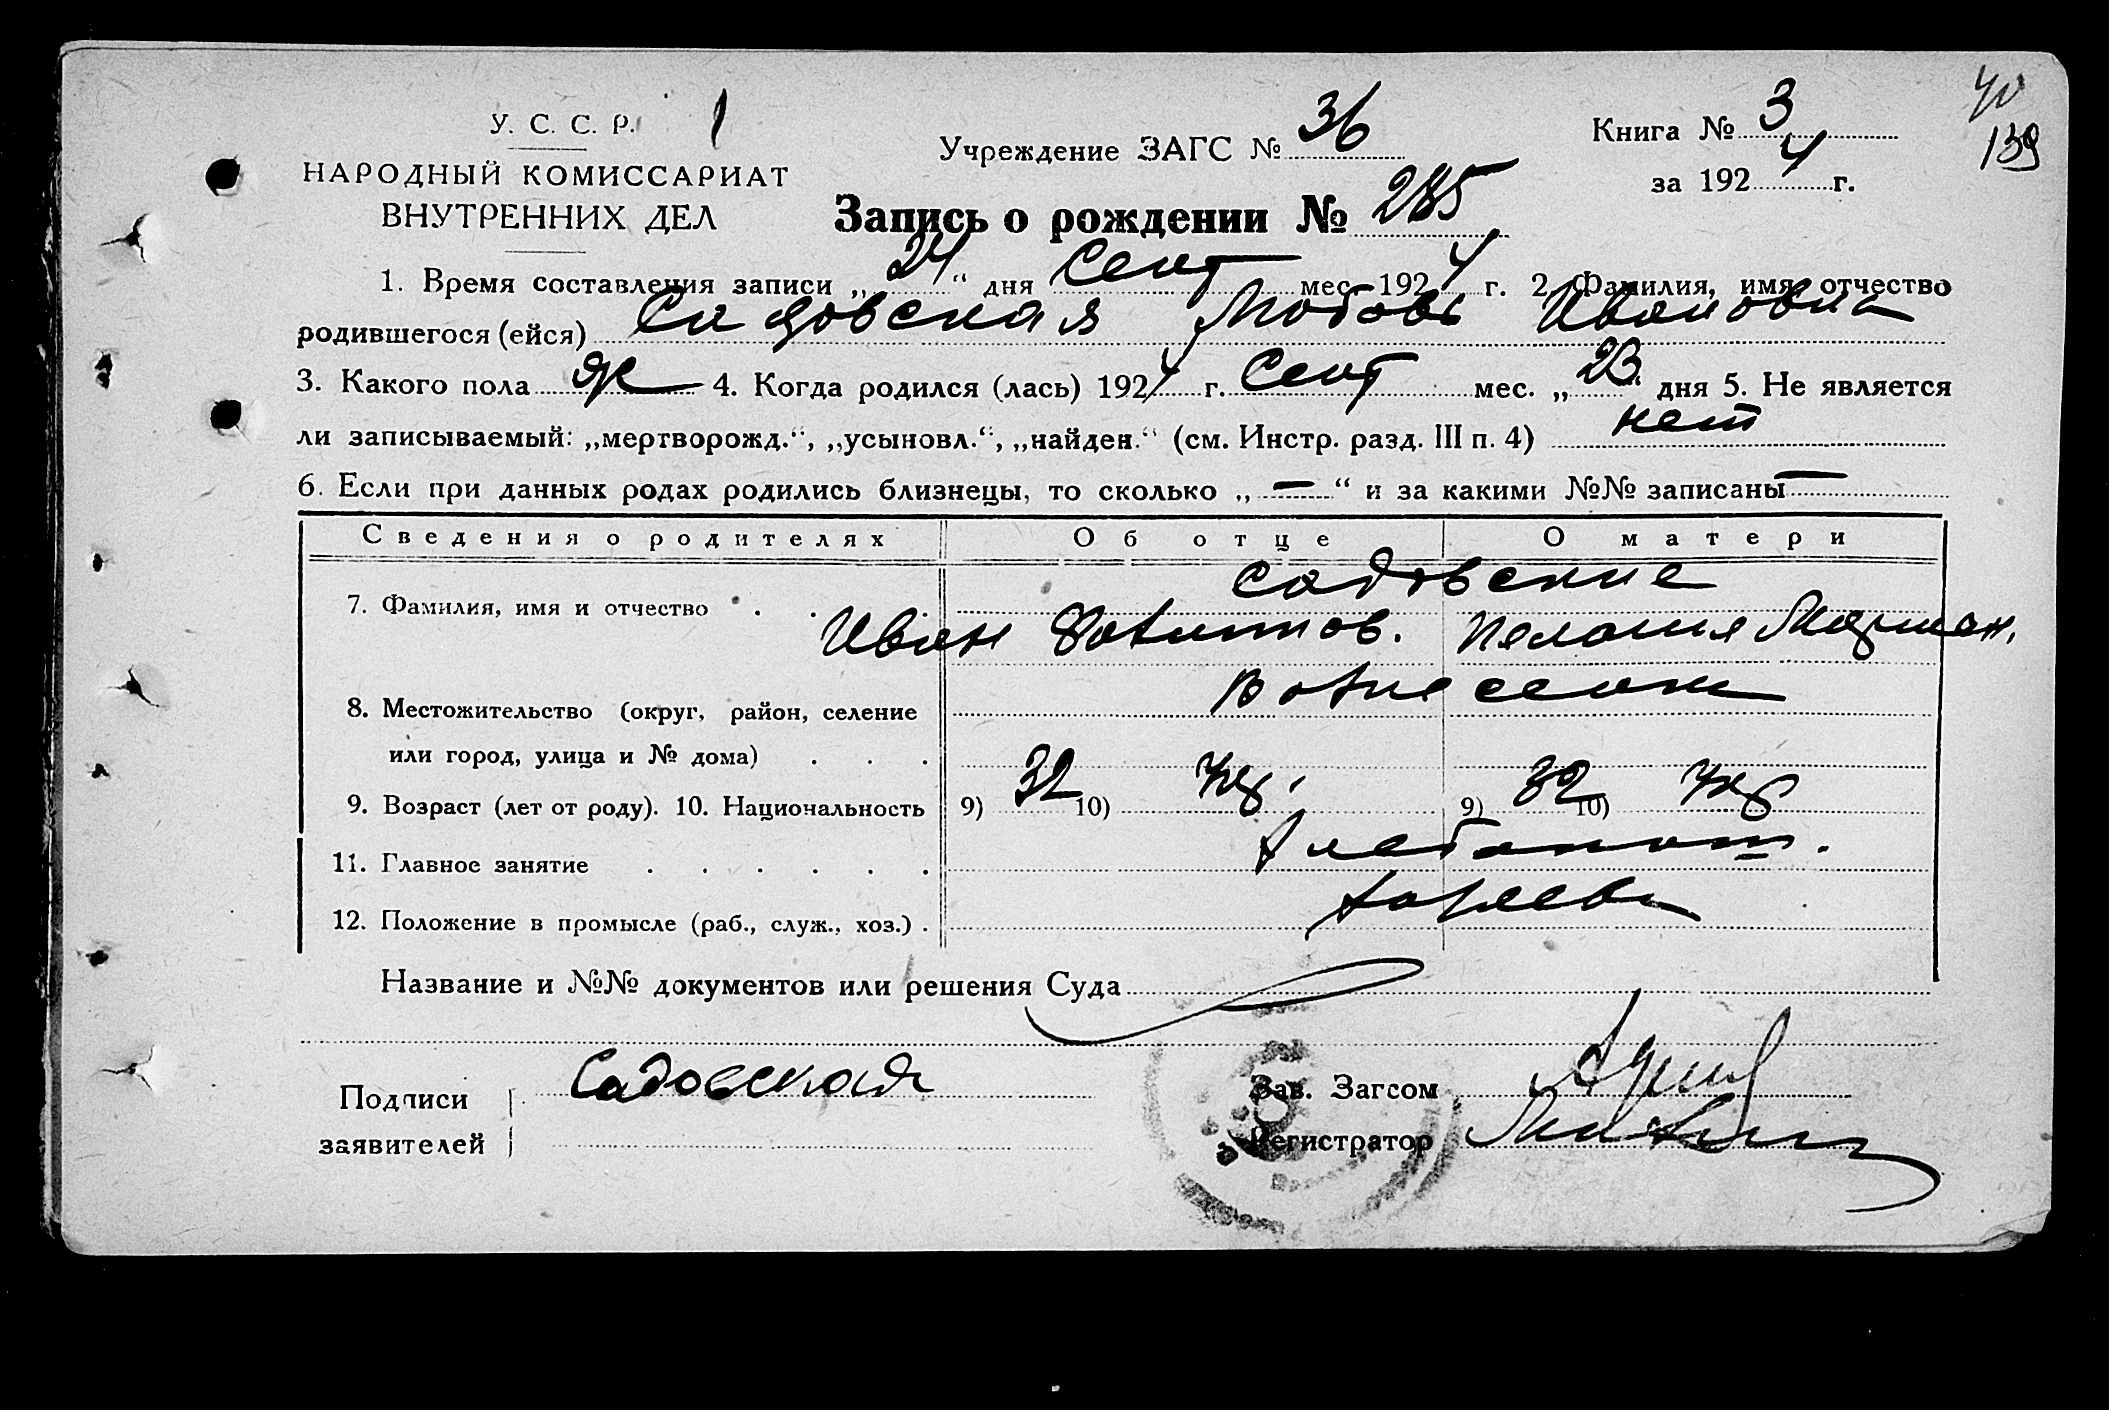 40
139
У. С. С. Р. 1
НАРОДНЫЙ КОМИССАРИАТ
ВНУТРЕННИХ ДЕЛ
Учреждение ЗАГС № 36
Книга № 3
за 1924 г.
Запись о рождении № 285
1. Время составления записи „24“ дня Сент мес. 1924 г. 2. Фамилия, имя, отчество
родившегося (ейся) Садовская Любовь Ивановна
3. Какого пола ж 4. Когда родился (лась) 1924 г. Сент мес. „23“ дня 5. Не является
ли записываемый: „мертворожд.“, „усыновл.“, „найден.“ (см. Инстр. разд. III п. 4) нет
6. Если при данных родах родились близнецы, то сколько „—“ и за какими №№ записаны —
Сведения о родителях Об отце О матери
Садовские
7. Фамилия, имя и отчество . . . .
Иван Пелагия
8. Местожительство (округ, район, селение
Вознесенск
или город, улица и № дома) . . .
9. Возраст (лет от роду). 10. Национальность 9) 32 10) Укр. 9) 32 10) Укр
11. Главное занятие . . . . . . Хлебопаш.
12. Положение в промысле (раб., служ., хоз.) . хозяева
Название и №№ документов или решения Суда
Подписи Садовская
заявителей
Зав. Загсом
Регистратор